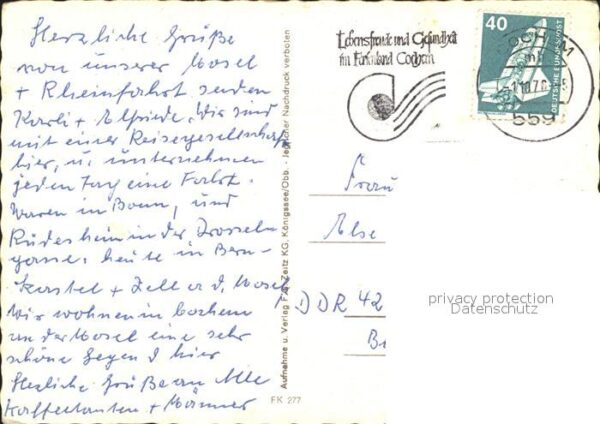 Herzliche Grüße
von unserer Mosel
+ Rheinfahrt senden
Karli + Elfriede, Wir sind
mit einer Reisegesellschaft
hier, u. unternehmen
jeden Tag eine Fahrt.
Waren in Bonn, und
Rüdesheim in der Drossel
gasse, heute in Bern-
kastel + Zell a. d. Mosel
Wir wohnen in Cochem
an der Mosel eine sehr
schöne Gegend hier
Herzliche Grüße an Alle
Kaffeetanten + Männer
Aufnahme u. Verlag Zeitz KG, Königssee/Obb. - Jeglicher Nachdruck verboten
FK 277
Lebensfreude und Gesundheit
im Ferienland Cochem
40
DEUTSCHE BUNDESPOST
COCHEM
559
Frau
Else
DDR 42
privacy protection
Datenschutz